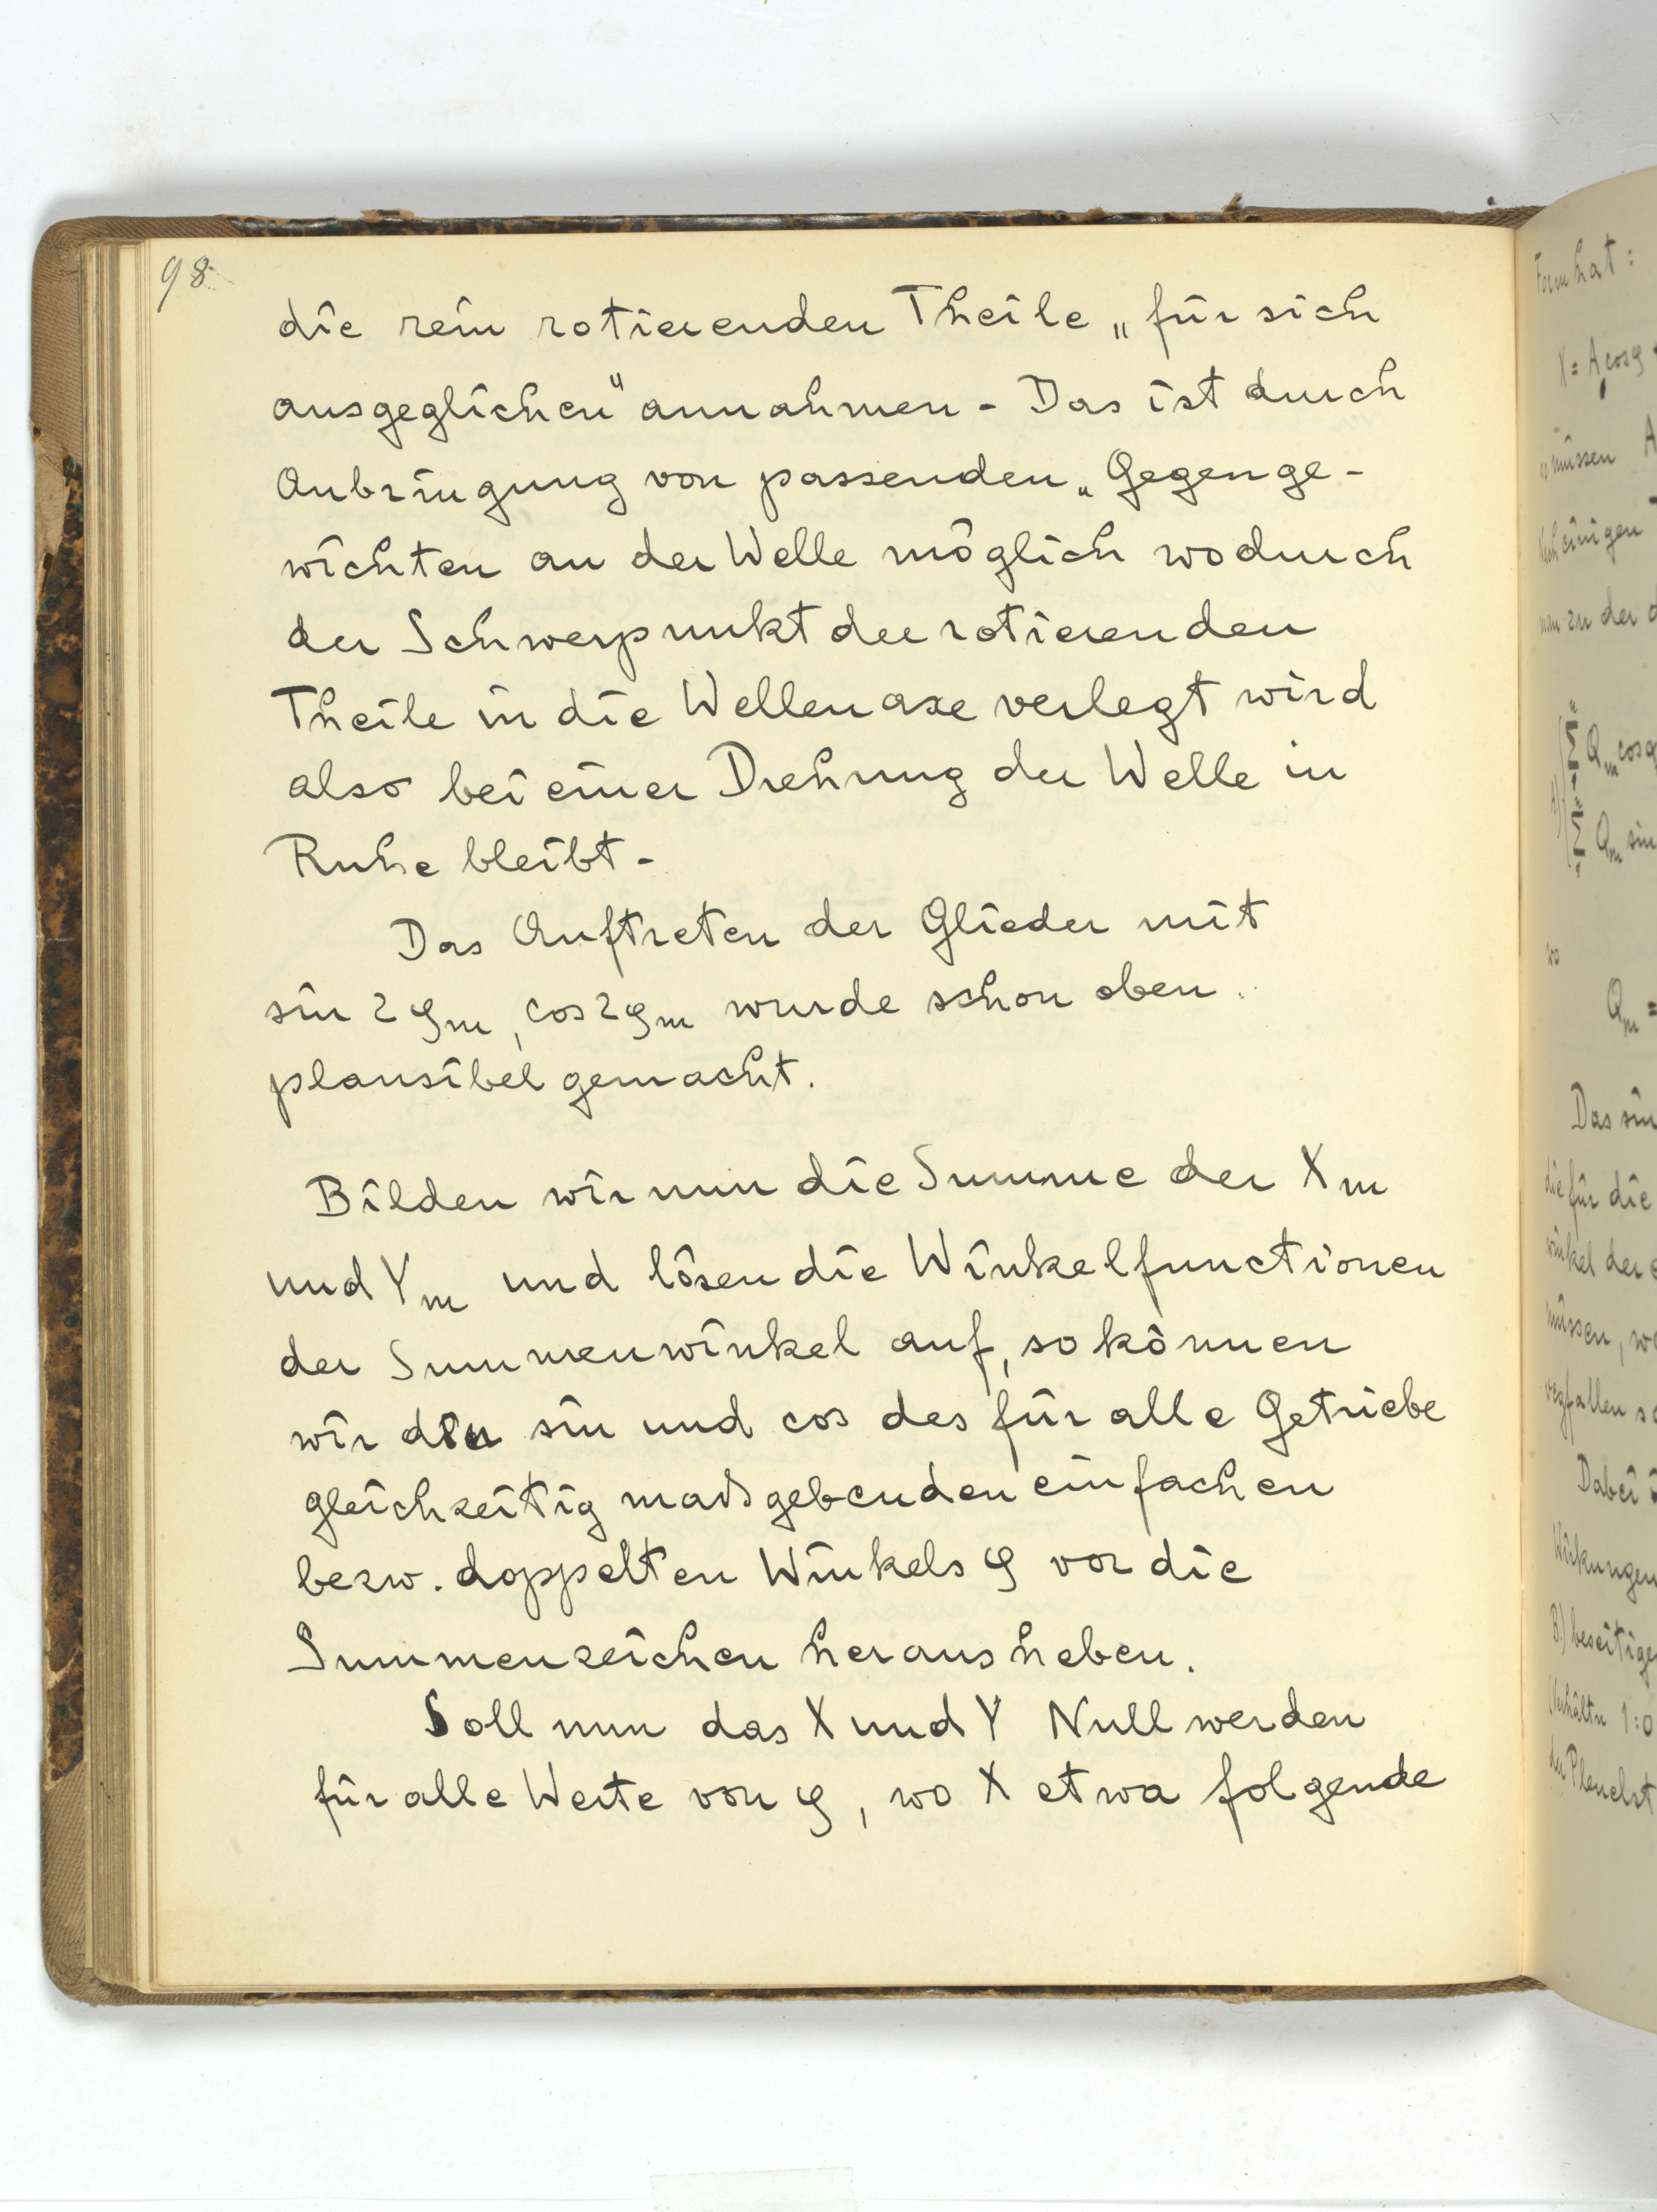 98
die rein rotierenden Theile „für sich
ausgeglichen“ annahmen - Das ist durch
Anbringung von passenden „Gegenge-
wichten an der Welle möglich wodurch
der Schwerpunkt der rotierenden
Theile in die Wellenaxe verlegt wird
also bei einer Drehung der Welle in
Ruhe bleibt -
Das Auftreten der Glieder mit
sin 2φm, cos 2φm wurde schon oben
plausibel gemacht.
Bilden wir nun die Summe der Xm
und Ym und lösen die Winkelfunctionen
der Summenwinkel auf, so können
wir den sin und cos des für alle Getriebe
gleichzeitig maßgebenden einfachen
bezw. doppelten Winkels φ vor die
Summenzeichen herausheben.
Soll nun das X und Y Null werden
für alle Werte von φ, wo X etwa folgende
Form hat:
X = A cos φ
müssen A
einigen
men zu der d
Qm cos φ
Qm sin
wo
Qm =
Das sin
die für die
winkel der e
müssen, wo
wegfallen so
Dabei i
Wirkungen
B) beseitige
1:0
der Pleuelst